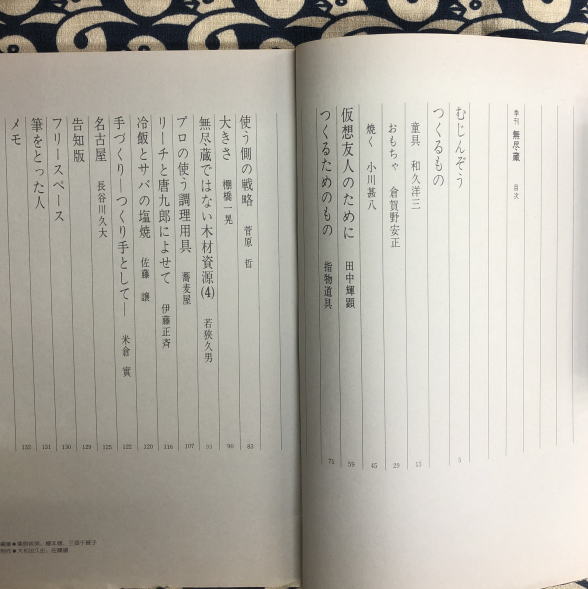 季刊 無尽蔵 目次
むじんぞう 5
つくるもの
童具 和久洋三 13
おもちゃ 倉賀野安正 29
焼く 小川甚八 45
仮想友人のために 田中輝顕 59
つくるためのもの 指物道具 71
使う側の戦略 菅原 哲 83
大きさ 棚橋一晃 90
無尽蔵ではない木材資源(4) 若狭久男 93
プロの使う調理用具 蕎麦屋 107
リーチと唐九郎によせて 伊藤正斉 116
冷飯とサバの塩焼 佐藤 譲 120
手づくり—つくり手として— 米倉 實 122
名古屋 長谷川久大 125
告知版 129
フリースペース 130
筆をとった人 131
メモ 132